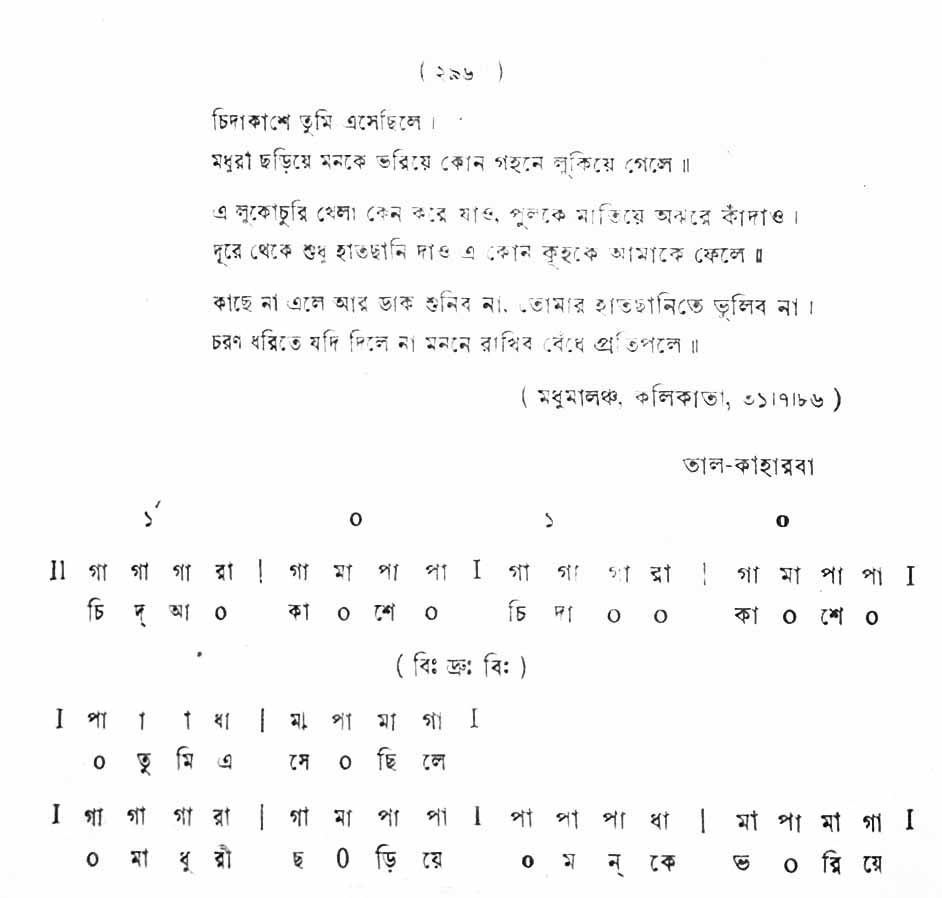 ( ২৯৬ )
চিদাকাশে তুমি এসেছিলে ।
মধুরী ছড়িয়ে মনকে ভরিয়ে কোন গহনে লুকিয়ে গেলে ॥
এ লুকোচুরি খেলা কেন করে যাও, পুলকে মাতিয়ে অঝরে কাঁদাও ।
দূরে থেকে শুধু হাতছানি দাও এ কোন কুহকে আমাকে ফেলে ॥
কাছে না এলে আর ডাক শুনিব না, তোমার হাতছানিতে ভুলিব না ।
চরণ ধরিতে যদি দিলে না মননে রাখিব বেঁধে প্রতিপলে ॥
( মধুমালঞ্চ, কলিকাতা, ৩১।৭।৮৬ )
তাল-কাহারবা
১´ o ১ o
II গা গা গা রা | গা মা পা পা I গা গা গা রা | গা মা পা পা I
চি দ্ আ o কা o শে o চি দা o o কা o শে o
( বিঃ দ্রুঃ বিঃ )
I পা া া ধা | মা পা মা গা I
o তু মি এ সে o ছি লে
I গা গা গা রা | গা মা পা পা I পা পা পা ধা | মা পা মা গা I
o মা ধু রী ছ o ড়ি য়ে o ম ন্ কে ভ o রি য়ে